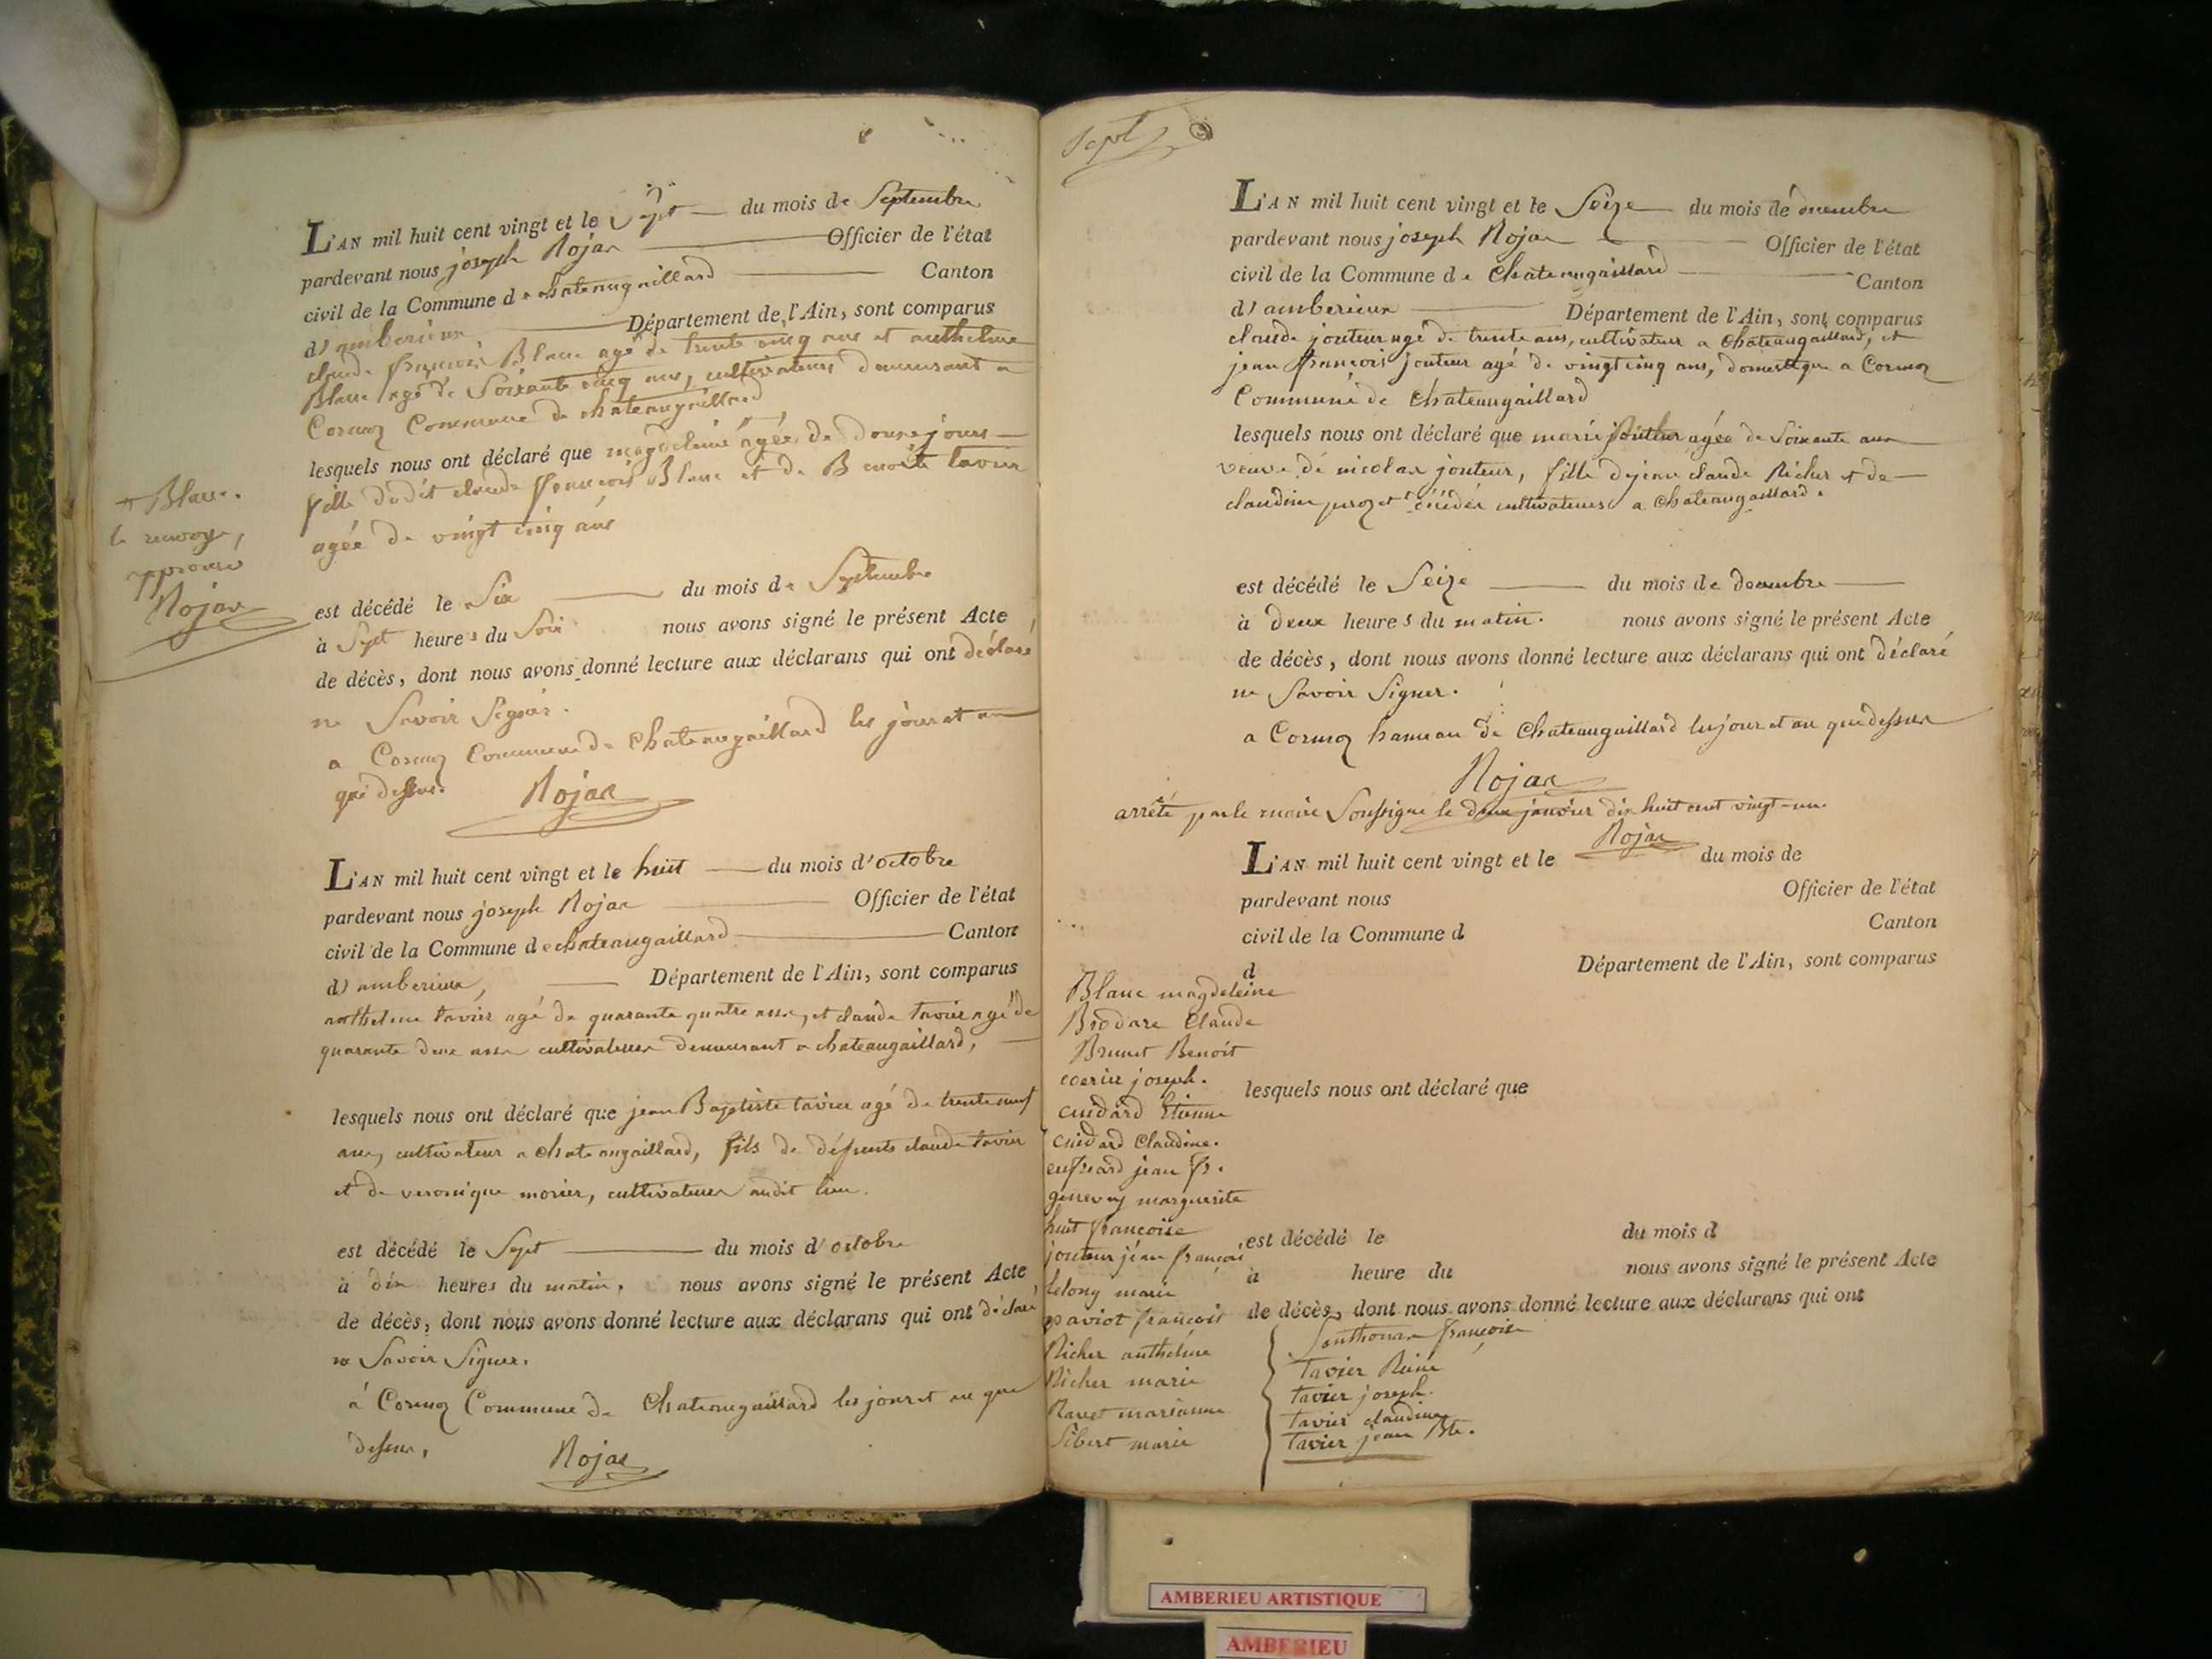 L'AN mil huit cent vingt et le Sept du mois de Septembre
pardevant nous joseph Rojan Officier de l'état
civil de la Commune de chateaugaillard Canton
d'amberieux Département de l'Ain, sont comparus
claude françois Blanc agé de trente cinq ans et anthelme
Blanc agé de Soixante cinq ans, cultivateurs demeurant a
Cormoz Commune de chateaugaillard
lesquels nous ont déclaré que magdeleine agée de douze jours
fille dudit claude françois Blanc et de Benoite tavier
agée de vingt cinq ans
Blanc.
le renvoye,
approuvé
Rojan
est décédé le Six du mois de Septembre
à Sept heures du Soir nous avons signé le présent Acte
de décès, dont nous avons donné lecture aux déclarans qui ont déclaré
ne Savoir Signer.
a Cormoz Commune de Chateaugaillard les jour et an
que dessus. Rojan
L'AN mil huit cent vingt et le huit du mois d'octobre
pardevant nous joseph Rojan Officier de l'état
civil de la Commune de chateaugaillard Canton
d'amberieux, Département de l'Ain, sont comparus
anthelme tavier agé de quarante quatre ans, et claude tavier agé de
quarante deux ans cultivateurs demeurant a chateaugaillard,
lesquels nous ont déclaré que jean Baptiste tavier agé de trente neuf
ans, cultivateur a chateaugaillard, fils de défunts claude tavier
et de veronique morier, cultivateurs audit lieu.
est décédé le Sept du mois d'octobre
à dix heures du matin. nous avons signé le présent Acte,
de décès, dont nous avons donné lecture aux déclarans qui ont déclaré
ne Savoir Signer.
à Cormoz Commune de Chateaugaillard les jour et an que
dessus, Rojan
Sept
L'AN mil huit cent vingt et le Seize du mois de decembre
pardevant nous joseph Rojan Officier de l'état
civil de la Commune de Chateaugaillard Canton
d'amberieux Département de l'Ain, sont comparus
claude jouteur agé de trente ans, cultivateur a Chateaugaillard, et
jean françois jouteur agé de vingt cinq ans, domestique a Cormoz
Commune de Chateaugaillard
lesquels nous ont déclaré que marie agée de Soixante ans
veuve de nicolas jouteur, fille de jean claude Richer et de
claudine décédés cultivateurs a Chateaugaillard.
est décédé le Seize du mois de decembre
à deux heures du matin. nous avons signé le présent Acte
de décès, dont nous avons donné lecture aux déclarans qui ont déclaré
ne Savoir Signer.
a Cormoz hameau de Chateaugaillard les jour et an que dessus
Rojan
arrêté par le maire Soussigné le deux janvier dix huit cent vingt-un.
Rojan
L'AN mil huit cent vingt et le du mois de
pardevant nous Officier de l'état
civil de la Commune d Canton
d Département de l'Ain, sont comparus
Blanc magdeleine
Brodare Claude
Brunet Benoit
joseph.
cuidard Etienne
cuidard Claudine.
jean fr.
genevay marguerite
huit françoise
jouteur jean françois
Lelong marie
paviot françois
Richer anthelme
Richer marie
Ravet marianne
Sibert marie
lesquels nous ont déclaré que
est décédé le du mois d
à heure du nous avons signé le présent Acte
de décès, dont nous avons donné lecture aux déclarans qui ont
françoise
Tavier Reine
Tavier joseph.
Tavier claudine
Tavier jean Bte.
AMBERIEU ARTISTIQUE
AMBERIEU